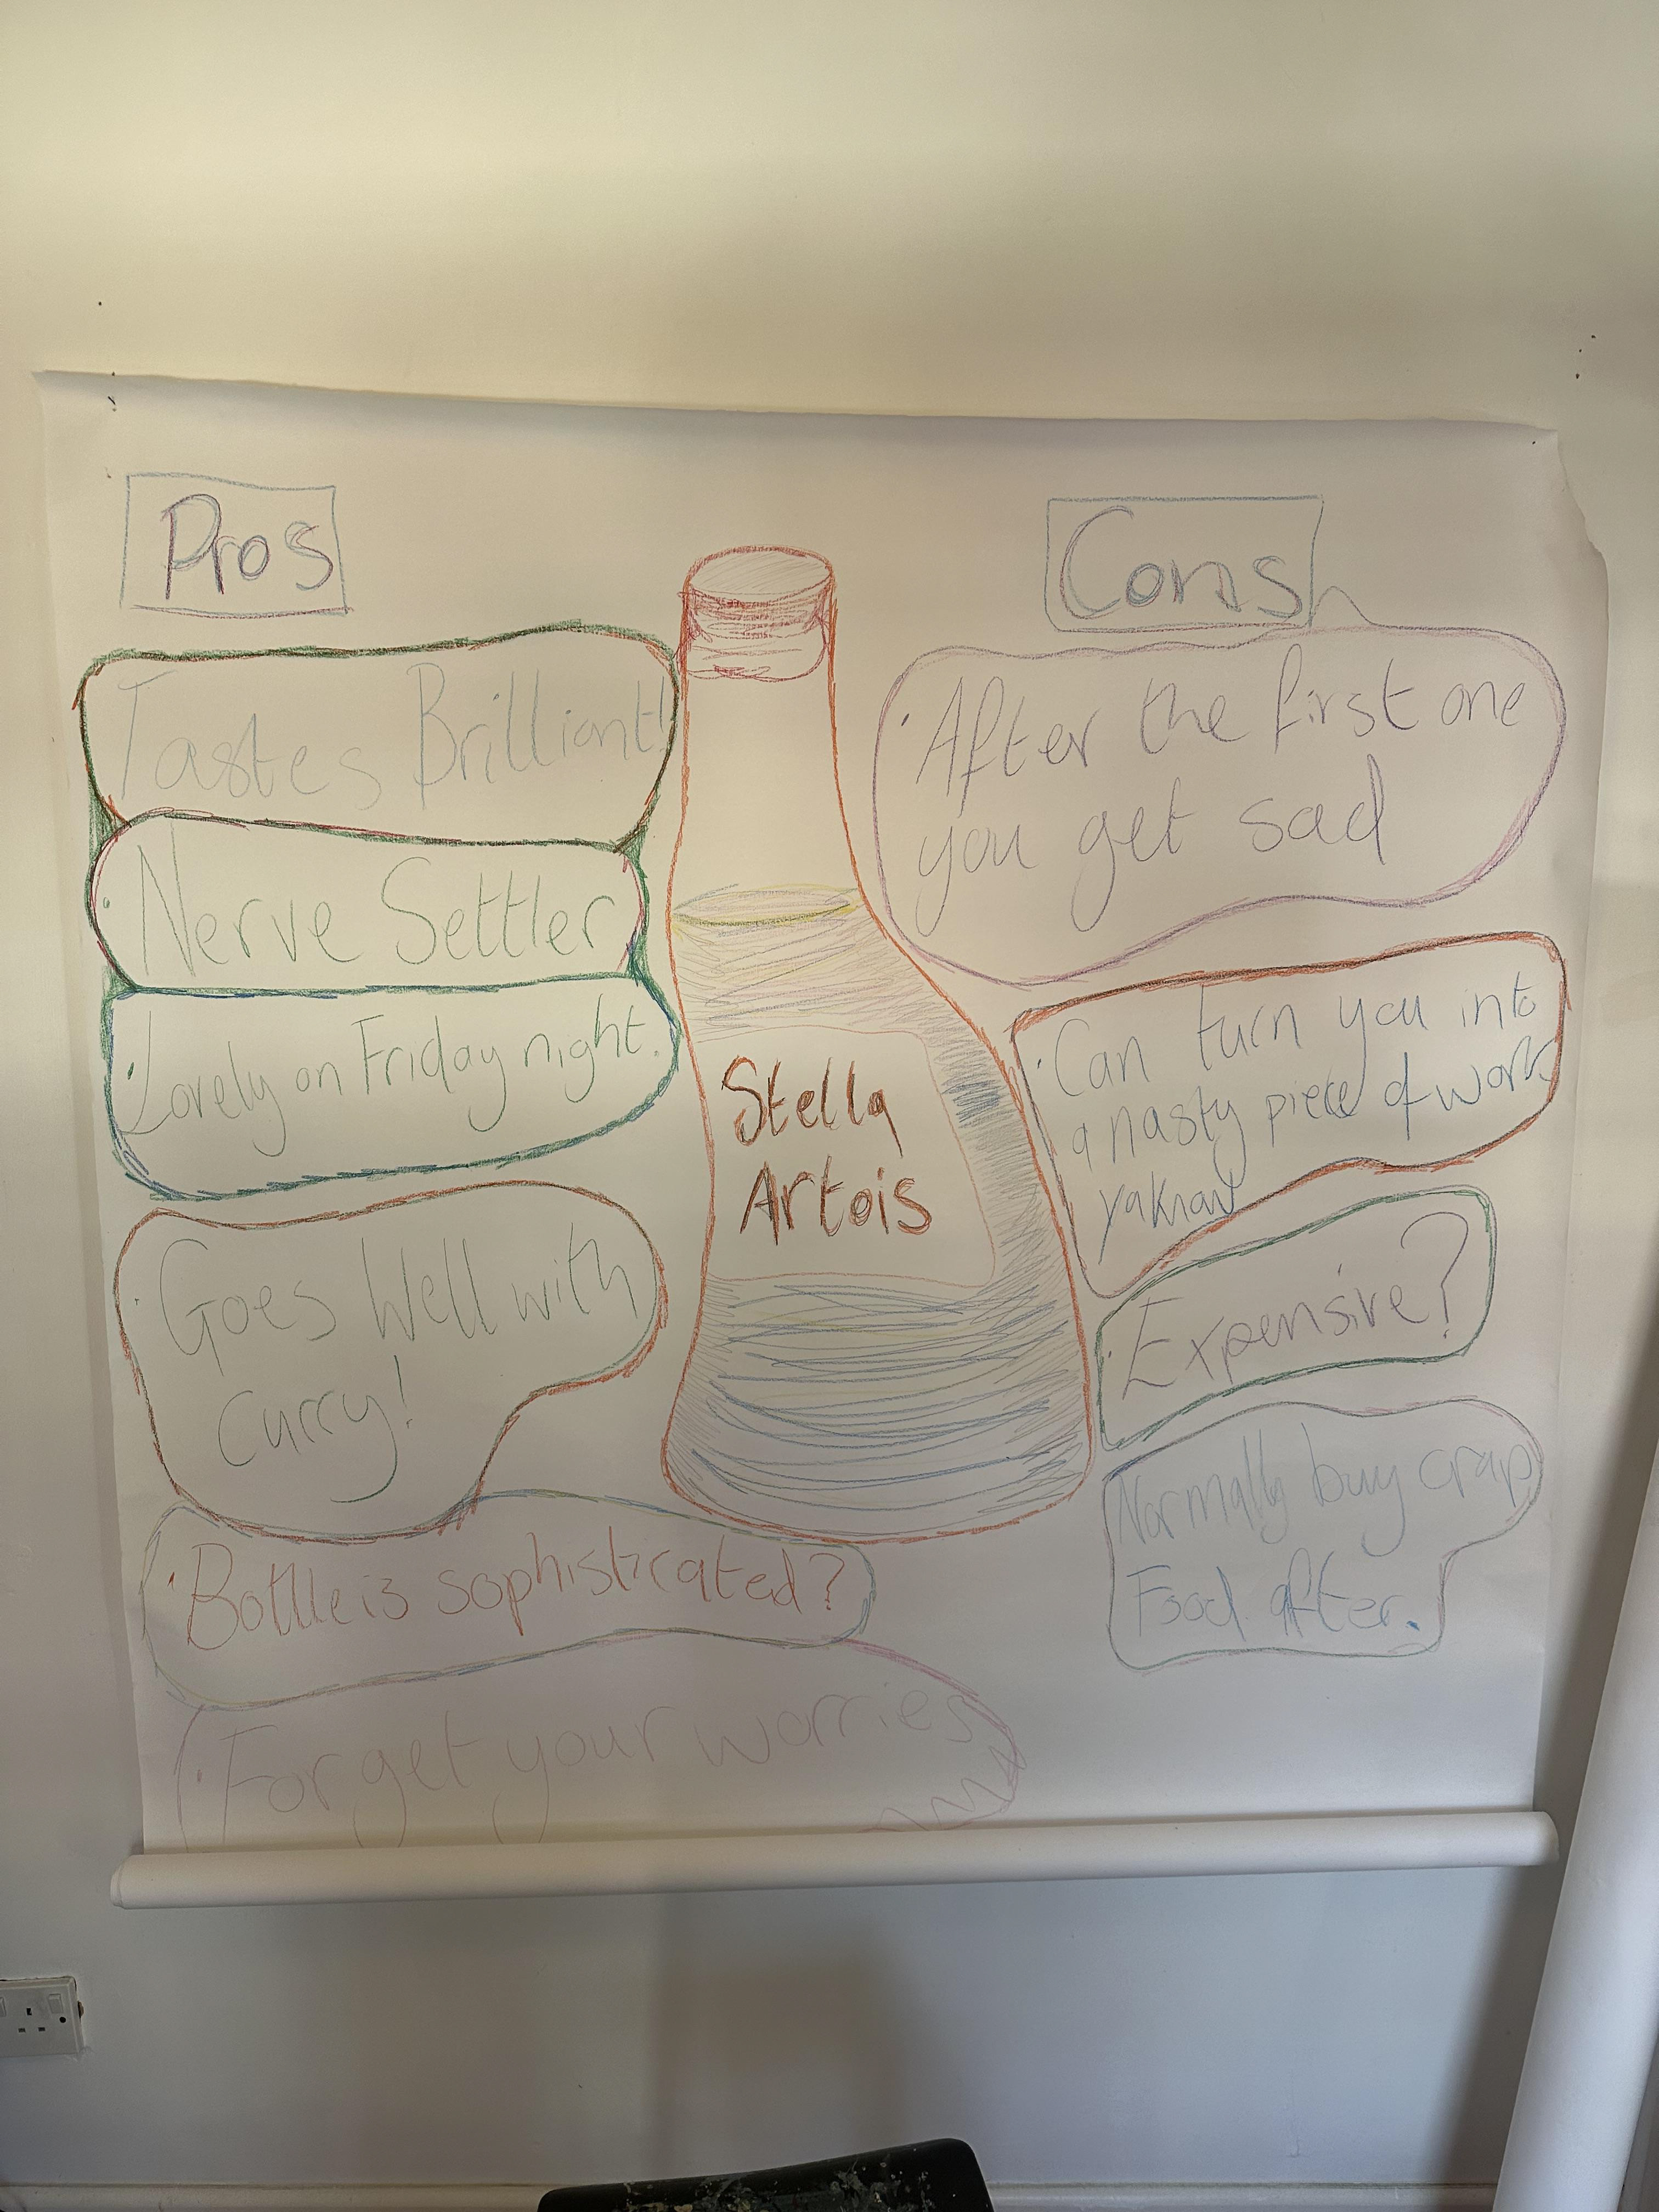 Pros
Tastes Brilliant!
· Nerve Settler
· Lovely on Friday night.
· Goes Well with
Curry!
· Bottle is sophisticated?
· Forget your worries
Stella
Artois
Cons
· After the first one
you get sad
· Can turn you into
a nasty piece of work
yaknow
· Expensive?
Normally buy crap
Food after.